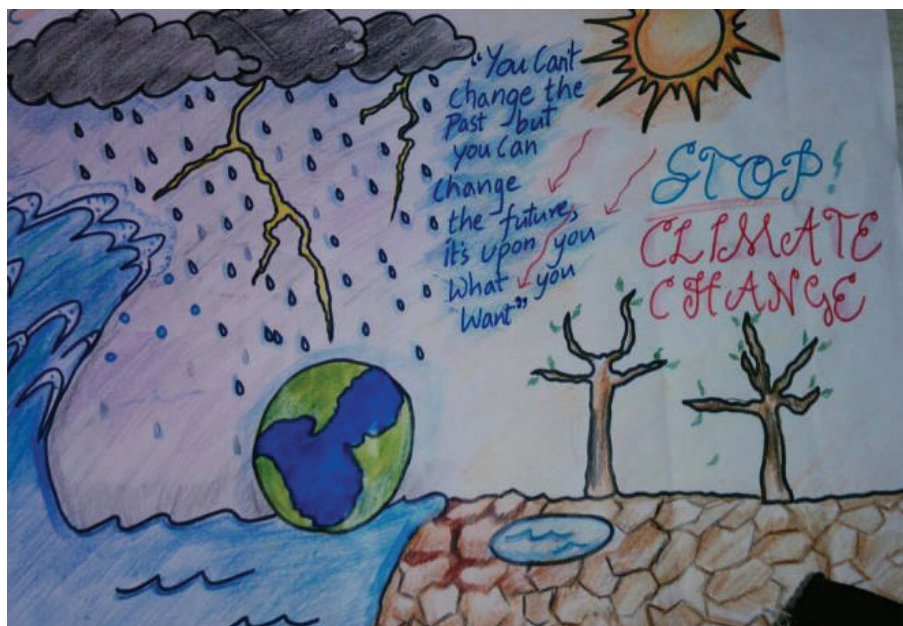 "You Can't
change the
Past but
you Can
change
the future,
it's upon you
What you
Want"
STOP!
CLIMATE
CHANGE